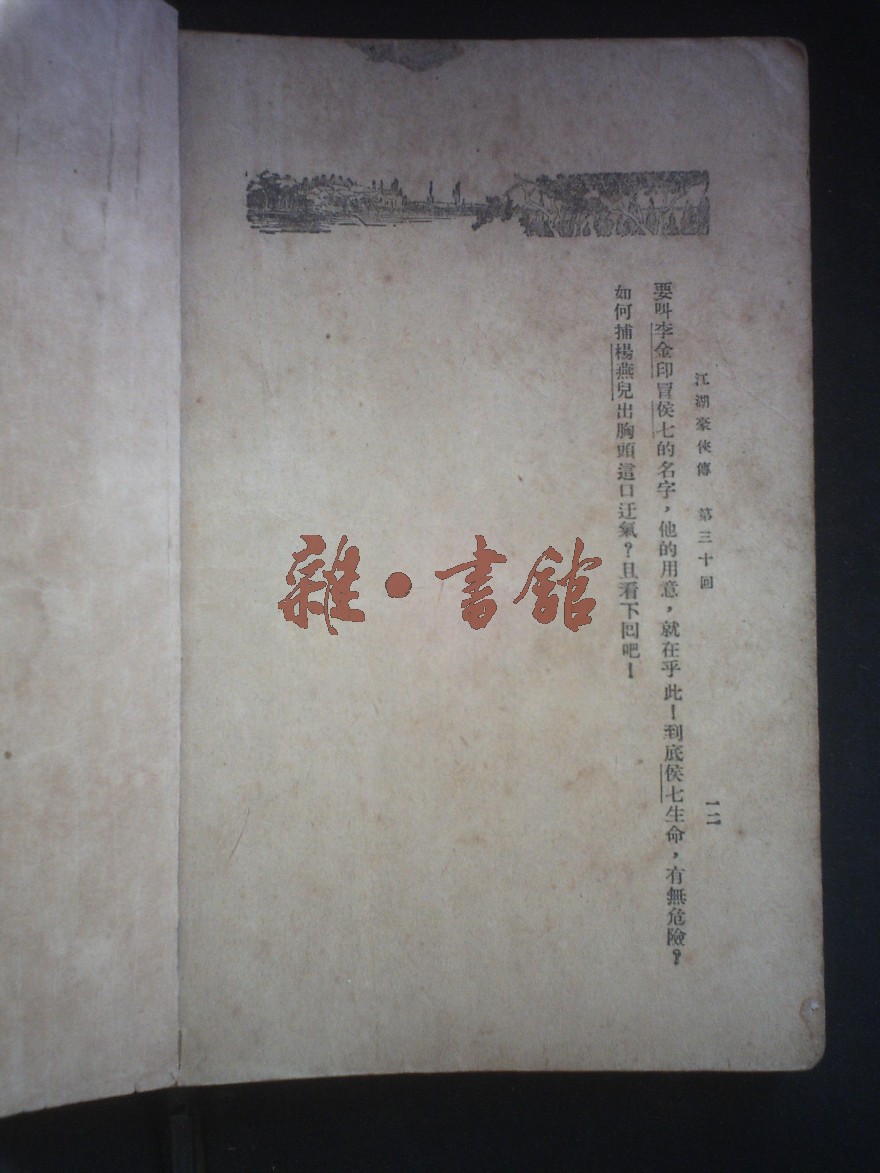 江湖豪俠傳　第三十回　一二
要叫李金印冒侯七的名字，他的用意，就在乎此！到底侯七生命，有無危險？
如何捕楊燕兒出胸頭這口迂氣？且看下回吧！
雜·書館